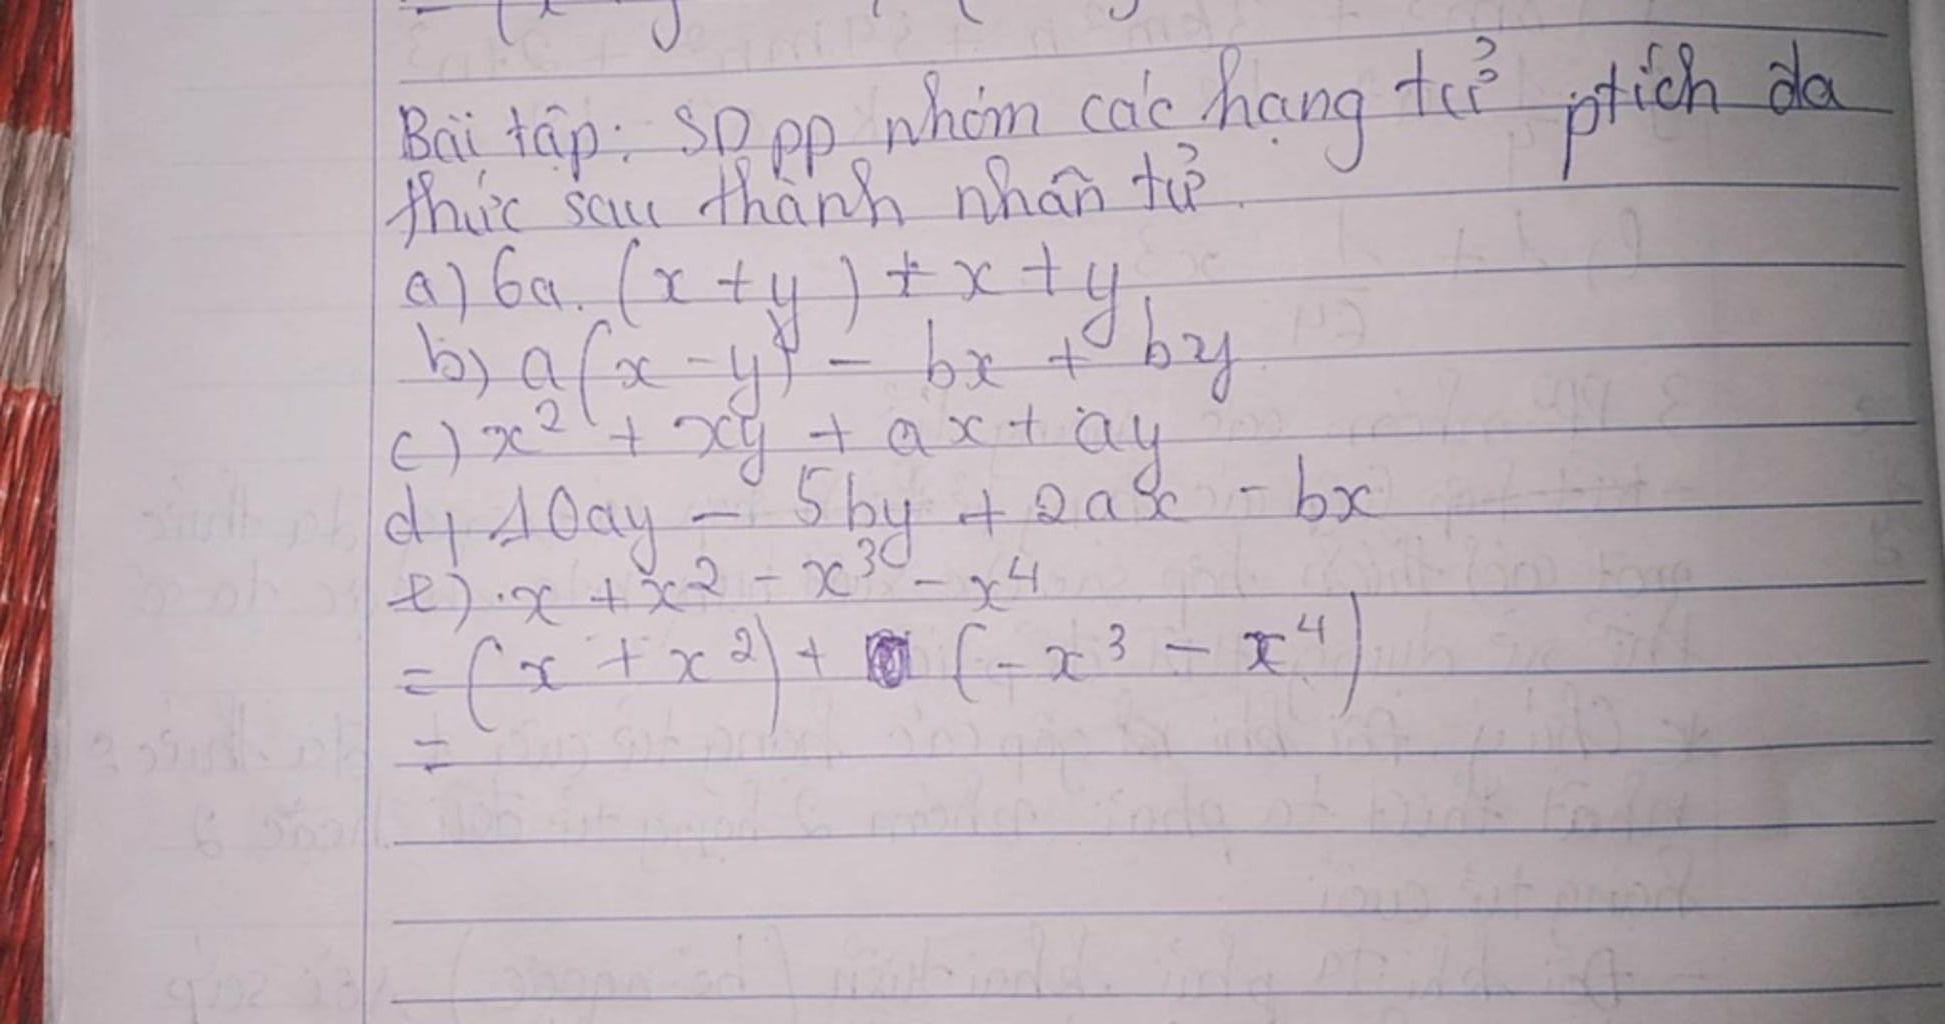 Bài tập: SD pp nhóm các hạng tử ptích đa
thức sau thành nhân tử.
a) 6a. (x + y) + x + y
b) a(x - y) - bx + by
c) x² + xy + ax + ay
d) 10ay - 5by + 2ax - bx
e) x + x² - x³ - x⁴
= (x + x²) + (- x³ - x⁴)
=